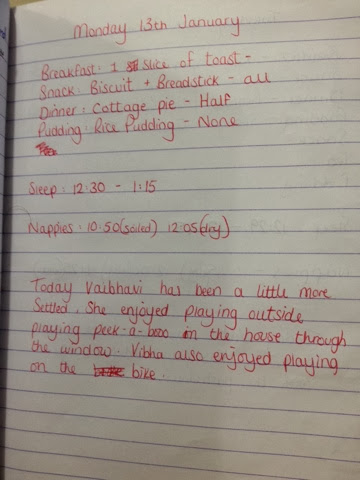 Monday 13th January
Breakfast: 1 slice of toast -
Snack: Biscuit + Breadstick - all
Dinner: Cottage pie - Half
Pudding: Rice Pudding - None
Sleep: 12:30 - 1:15
Nappies: 10:50(soiled) 12:05(dry)
Today Vaibhavi has been a little more
Settled. She enjoyed playing outside
playing peek-a-boo in the house through
the window. Vibha also enjoyed playing
on the bike.